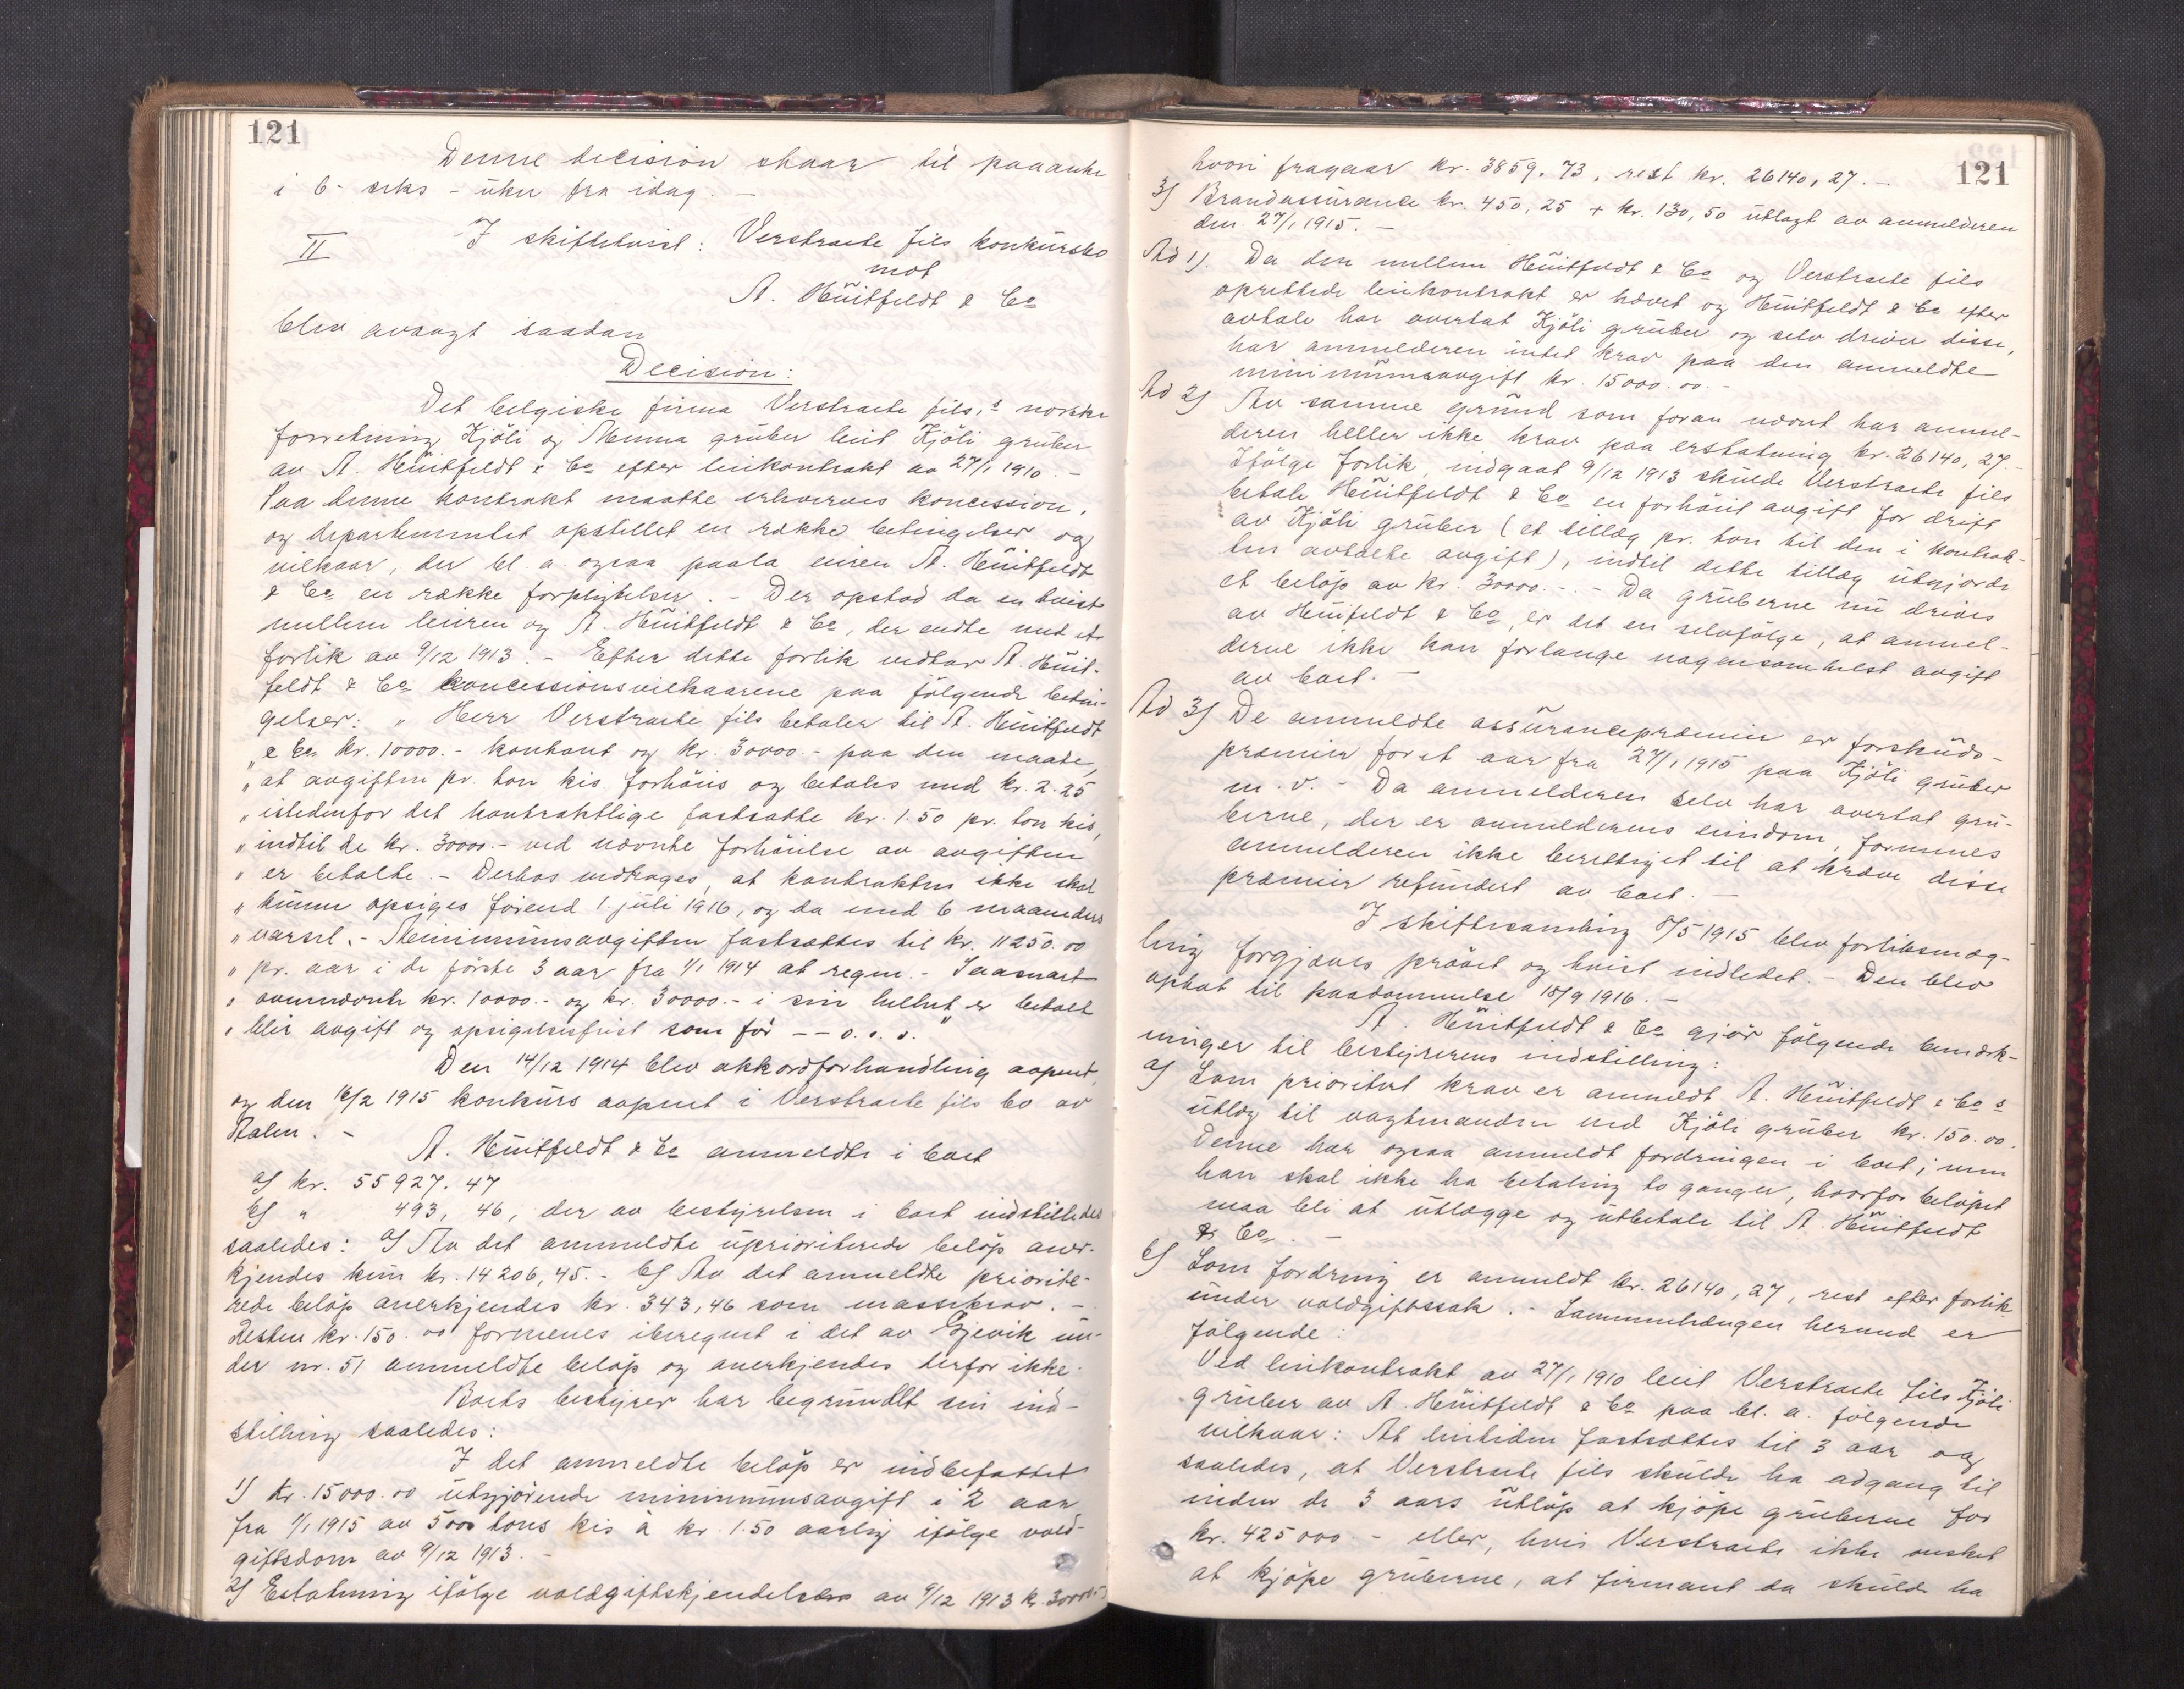 121
Denne decision staar til paaanke
i 6 - seks - uker fra idag. -
II I skiftetvist: Verstraete fils konkursbo
mot
A. Huitfeldt & Co
blev avsagt saadan
Decision:
Det belgiske firma Verstraete fils,s norske
forretning Kjöli og Menna gruber leiet Kjöli gruber
av A. Huitfeldt & Co efter leiekontrakt av 27/1 1910. -
Paa denne kontrakt maatte erhverves koncession,
og departementet opstillet en række betingelser og
vilkaar, der bl. a. ogsaa paala eieren A. Huitfeldt
& Co en række forpligtelser. - Der opstod da en tvist
mellem leieren og A. Huitfeldt & Co, der endte med et
forlik av 9/12 1913. - Efter dette forlik vedtar A. Huit-
feldt & Co koncessionsvilkaarene paa fölgende betin-
gelser: " Herr Verstraete fils betaler til A. Huitfeldt
" & Co kr. 10000.- kontant og kr. 30000.- paa den maate,
" at avgiften pr. ton kis forhöies og betales med kr. 2.25
" istedenfor det kontraktlige fastsatte kr. 1.50 pr. ton kis,
" indtil de kr. 30000.- ved nævnte forhöielse av avgiften
" er betalte. - Derhos vedtages, at kontrakten ikke skal
" kunne opsiges förend 1. juli 1916, og da med 6 maaneders
" varsel. - Minimumsavgiften fastsættes til kr. 11250.00
" pr. aar i de förste 3 aar fra 1/1 1914 at regne. - Saasnart
" ovennævnte kr. 10000.- og kr. 30000.- i sin helhet er betalt
" blir avgift og opsigelsesfrist som för -- o.s.v."
Den 14/12 1914 blev akkordforhandling aapnet,
og den 16/2 1915 konkurs aapnet i Verstraete fils bo av
Aalen. -
A. Huitfeldt & Co anmeldte i boet
a) kr. 55927.47
b) " 493,46, der av bestyrelsen i boet indstilledes
saaledes: a) Av det anmeldte uprioriterede belöp aner-
kjendes kun kr. 14206,45. - b) Av det anmeldte priorite-
rede belöp anerkjendes kr. 343,46 som massekrav. -
Resten kr. 150.00 formenes iberegnet i det av Gjevik un-
der nr. 51 anmeldte belöp og anerkjendes derfor ikke.
Boets bestyrer har begrundet sin ind-
stilling saaledes:
I det anmeldte belöp er indbefattet
1) kr. 15000.00 utgjörende minimumsavgift i 2 aar
fra 1/1 1915 av 5000 tons kis à kr. 1.50 aarlig ifölge vold-
giftsdom av 9/12 1913. -
2) Erstatning ifölge voldgiftskjendelsen av 9/12 1913 kr. 30000.-
121
hvori fragaar kr. 3859.73, rest kr. 26140,27. -
3) Brandassurance kr. 450,25 + kr. 130,50 utlagt av anmelderen
den 27/1 1915. -
Ad 1). Da den mellem Huitfeldt & Co og Verstraete fils
oprettede leiekontrakt er hævet og Huitfeldt & Co efter
avtale har overtat Kjöli gruber og selv driver disse,
har anmelderen intet krav paa den anmeldte
minimumsavgift kr. 15000.00. -
Ad 2) Av samme grund som foran nævnt har anmel-
deren heller ikke krav paa erstatning kr. 26140,27 -
Ifölge forlik, indgaat 9/12 1913 skulde Verstraete fils
betale Huitfeldt & Co en forhöiet avgift for drift
av Kjöli gruber (et tillæg pr. ton til den i kontrak-
ten avtalte avgift), indtil dette tillæg utgjorde
et belöp av kr. 30000.- - Da gruberne nu drives
av Huifeldt & Co, er det en selvfölge, at anmel-
derne ikke kan forlange nogensomhelst avgift
av boet. -
Ad 3) De anmeldte assurancepræmier er forskuds-
præmier for et aar fra 27/1 1915 paa Kjöli gruber
m. v. - Da anmelderen selv har overtat gru-
berne, der er anmelderens eiendom, formenes
anmelderen ikke berettiget til at kræve disse
præmier refundert av boet. -
I skiftesamling 8/5 1915 blev forliksmæg-
ling forgjæves prövet og tvist indledet. - Den blev
optat til paadömmelse 15/9 1916. -
A. Huitfeldt & Co gjör fölgende bemærk-
ninger til bestyrerens indstilling:
a) Som prioritert krav er anmeldt A. Huitfeldt & Co s
utlæg til vagtmanden ved Kjöli gruber kr. 150.00.
Denne har ogsaa anmeldt fordringen i boet; men
han skal ikke ha betaling to ganger, hvorfor belöpet
maa bli at utlægge og utbetale til A. Huitfeldt
& Co. -
b) Som fordring er anmeldt kr. 26140,27, rest efter forlik
under voldgiftssak. - Sammenhængen hermed er
fölgende:
Ved leiekontrakt av 27/1 1910 leiet Verstraete fils Kjöli
gruber av A. Huitfeldt & Co paa bl. a. fölgende
vilkaar: At leietiden fastsættes til 3 aar og
saaledes, at Verstraete fils skulde ha adgang til
inden de 3 aars utlöp at kjöpe gruberne for
kr. 425000 - eller, hvis Verstraete ikke önsket
at kjöpe gruberne, at firmaet da skulde ha